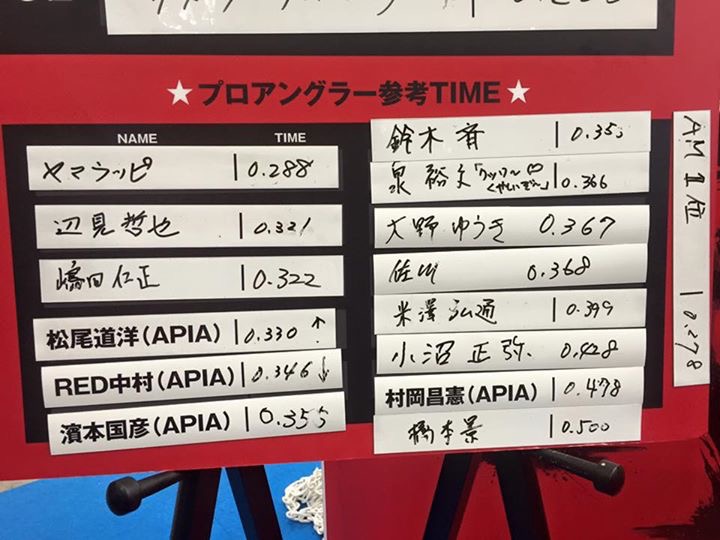 ★プロアングラー参考TIME★
NAME TIME
ヤマラッピ 0.288
辺見哲也 0.321
嶋田仁正 0.322
松尾道洋(APIA) 0.330 ↑
RED中村(APIA) 0.346 ↓
濱本国彦(APIA) 0.355
鈴木斉 0.353
泉裕文「クッソ〜♡くやしいぞ〜」 0.366
大野ゆうき 0.367
佐川 0.368
米澤弘通 0.399
小沼正弥 0.428
村岡昌憲(APIA) 0.478
橋本景 0.500
AM1位 0.278